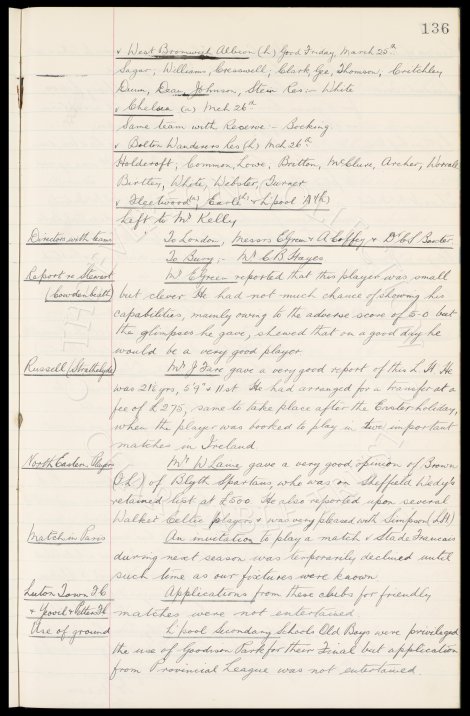 136
v West Bromwich Albion (h) Good Friday March 25th
Sagar; Williams, Cresswell; Clark, Gee, Thomson; Critchley
Dunn, Dean, Johnson, Stein Res:- White
v Chelsea (a) Mch 26th
Same team with Reserve:- Bocking.
v Bolton Wanderers Res (h) Mch 26th
Holdcroft; Common, Lowe; Britton, McClure, Archer; Worrall
Birtley, White, Webster, Turner
v Fleetwood (a), Earle (h) & L'pool "A" (h)
Left to Mr Kelly
Directors with team To London, Messrs E. Green & A. Coffey & Dr C. S. Baxter
To Bury:- Mr C B Hayes
Report re Stewart Mr E Green reported that this player was small
(Cowdenbeath) but clever. He had not much chance of showing his
capabilities, mainly owing to the adverse score of 5-0 but
the glimpses he gave, shewed that on a good day he
would be a very good player
Russell (Strathclyde) Mr J. Fare gave a very good report of this L H. He
was 21½ yrs, 5'9" & 11 st. He had arranged for a transfer at a
fee of £275, same to take place after the Easter holiday,
when the player was booked to play in two important
matches in Ireland.
North Eastern Players Mr W Lawe gave a very good opinion of Brown
of Blyth Spartans, who was on Sheffield Wedy's
retained list at £500. He also reported upon several
Walker Celtic players & was very pleased with Simpson (L.H)
Match in Paris An invitation to play a match v Stade Francais
during next season was temporarily declined until
such time as our fixtures were known.
Luton Town F C Applications from these clubs for friendly
& Yeovil & Petters F.C matches were not entertained.
Use of ground L'pool Secondary Schools Old Boys were privileged
the use of Goodison Park for their Final but application
from Provincial League was not entertained.